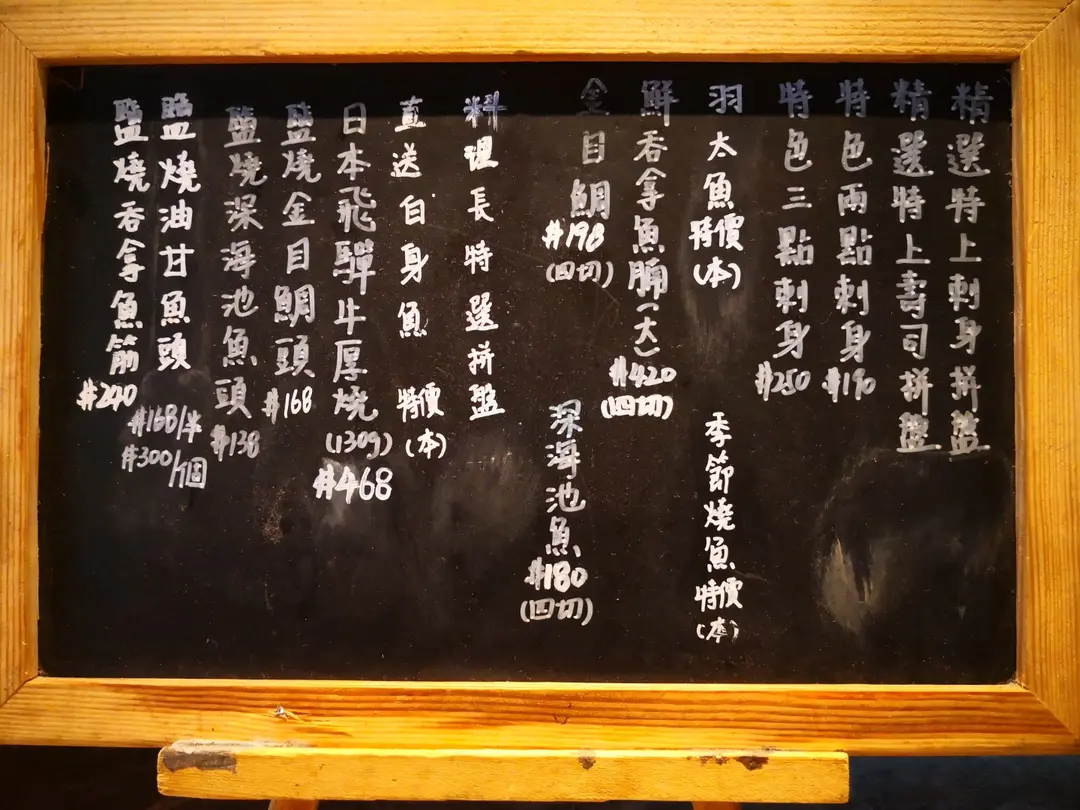 精選特上刺身拼盤
精選特上壽司拼盤
特色兩點刺身
$190
特色三點刺身
$250
羽太魚
特價
(本)
季節燒魚
特價
(本)
鮮吞拿魚腩(大)
$420
(四切)
金目鯛
$198
(四切)
深海池魚
$180
(四切)
料理長特選拼盤
直送白身魚
特價
(本)
日本飛驒牛厚燒
(130g)
$468
鹽燒金目鯛頭
$168
鹽燒深海池魚頭
$138
鹽燒油甘魚頭
$168/半
$300/1個
鹽燒吞拿魚筋
$240